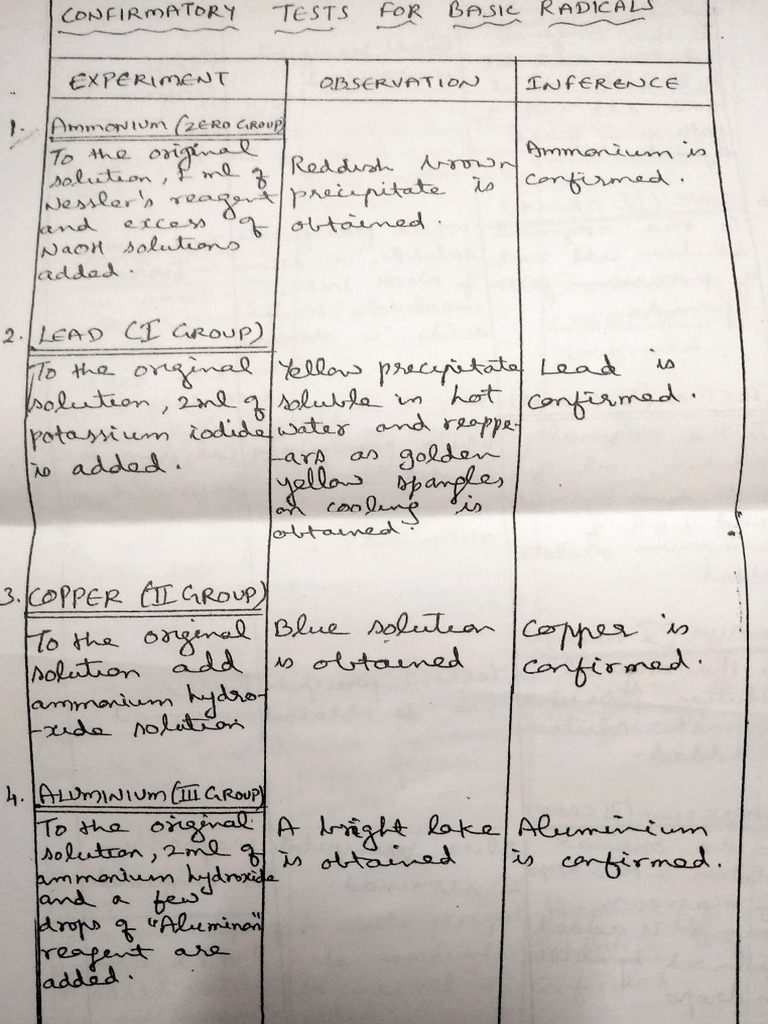 CONFIRMATORY TESTS FOR BASIC RADICALS
EXPERIMENT
OBSERVATION
INFERENCE
1. AMMONIUM (ZERO GROUP)
To the original
solution, 1 ml of
Nessler's reagent
and excess of
NaOH solutions
added.
Reddish brown
precipitate is
obtained.
Ammonium is
confirmed.
2. LEAD (I GROUP)
To the original
solution, 2ml of
potassium iodide
is added.
Yellow precipitate
soluble in hot
water and reappe-
-ars as golden
yellow spangles
on cooling is
obtained.
Lead is
confirmed.
3. COPPER (II GROUP)
To the original
solution add
ammonium hydro-
-xide solution
Blue solution
is obtained
Copper is
confirmed.
4. ALUMINIUM (III GROUP)
To the original
solution, 2ml of
ammonium hydroxide
and a few
drops of "Aluminon"
reagent are
added.
A bright lake
is obtained
Aluminium
is confirmed.